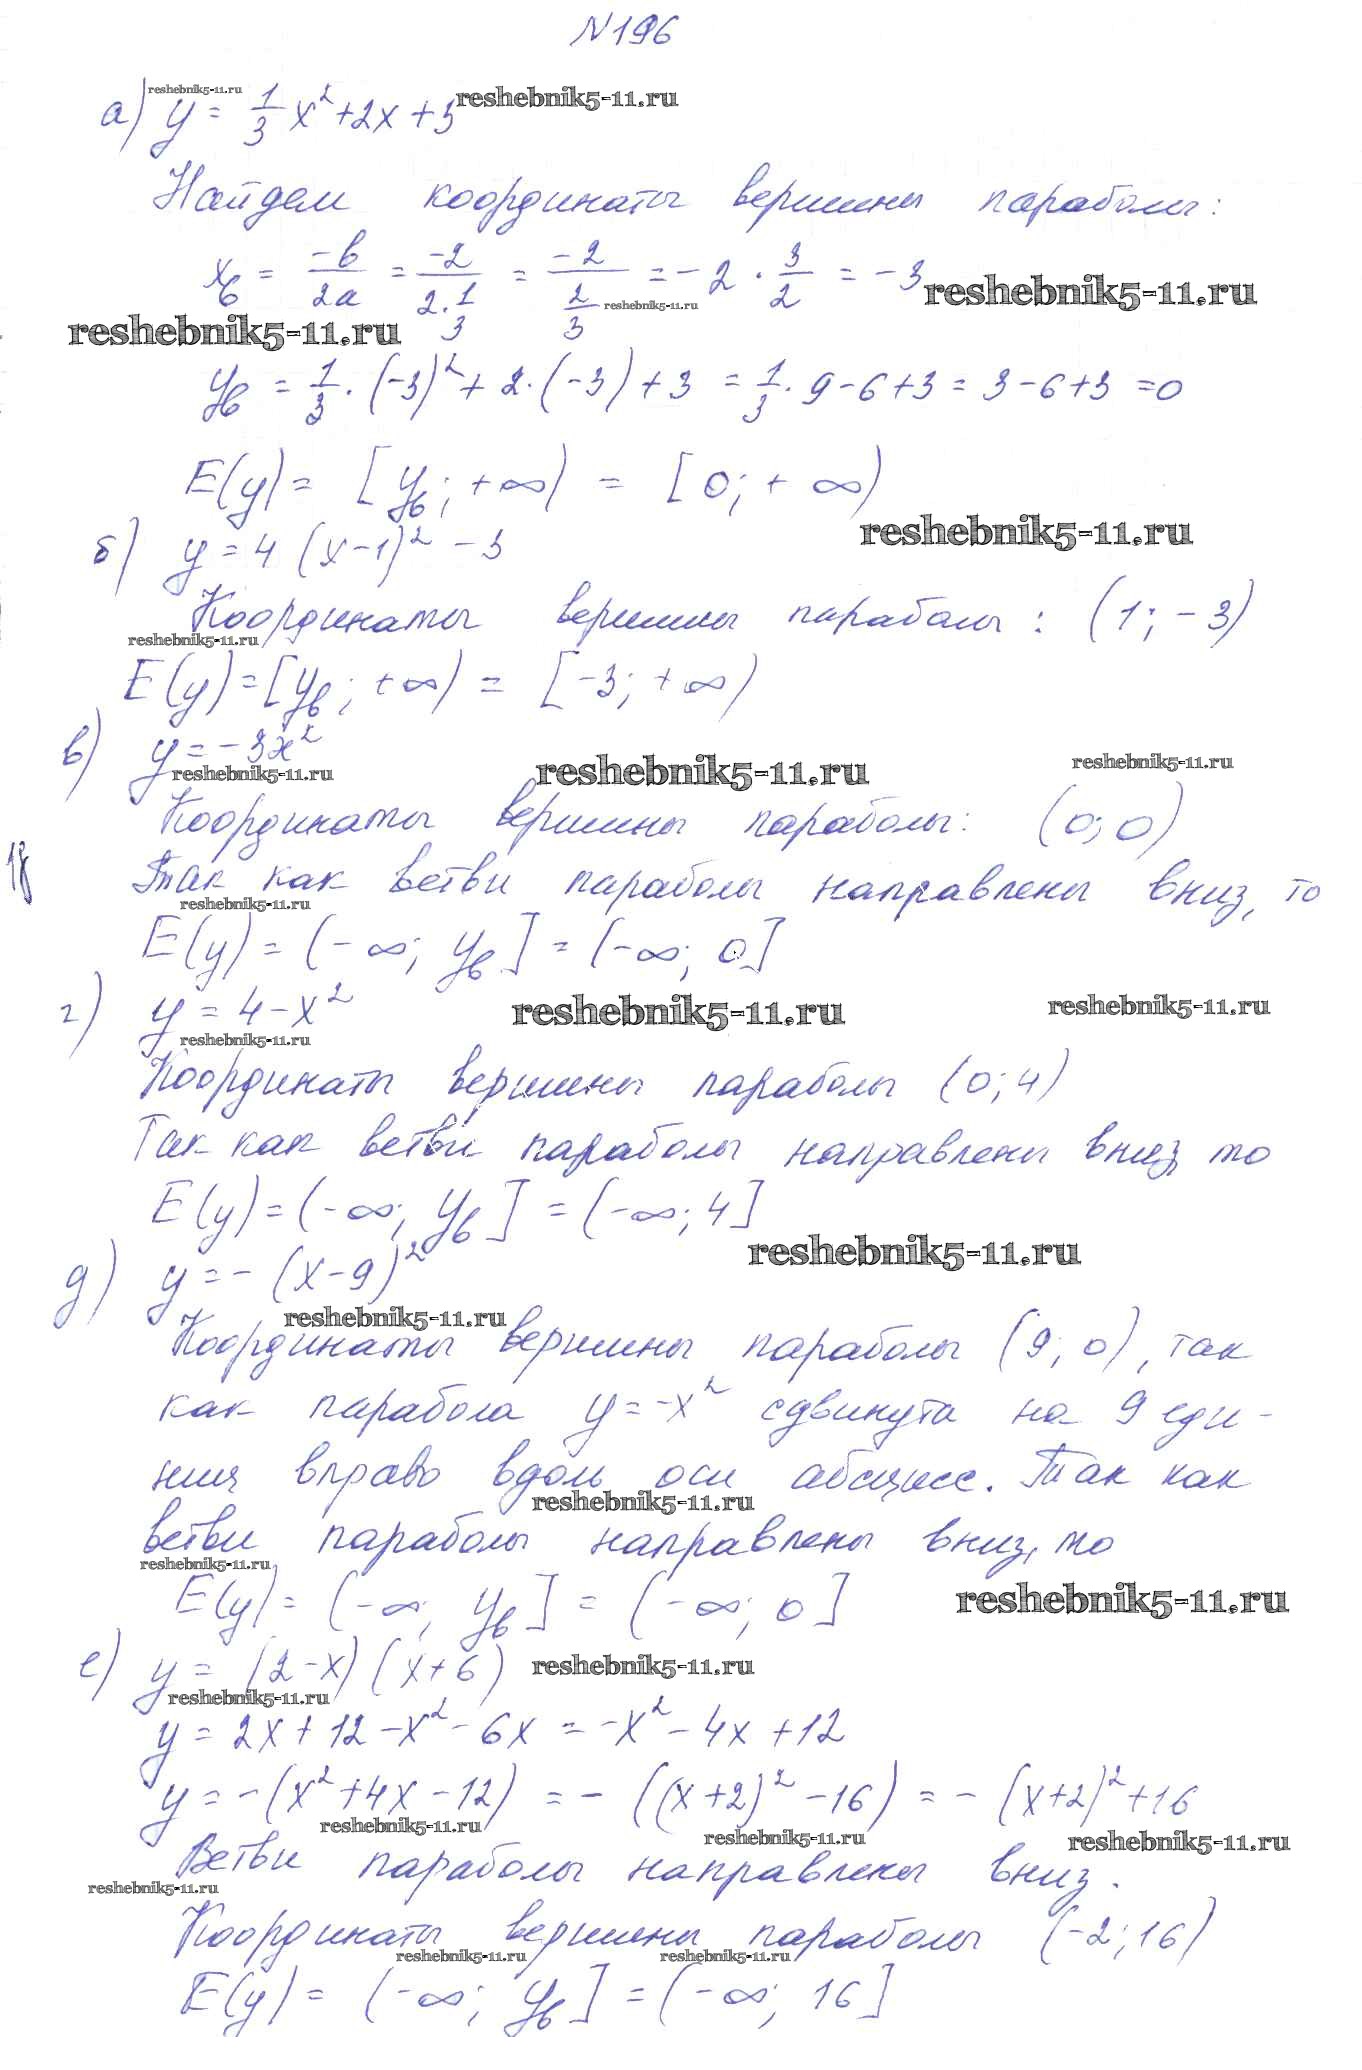 N196
а) y = 1/3 x² + 2x + 3
reshebnik5-11.ru reshebnik5-11.ru
Найдем координаты вершины параболы:
x_в = -b/2a = -2/(2·1/3) = -2/(2/3) = -2 · 3/2 = -3
reshebnik5-11.ru reshebnik5-11.ru
reshebnik5-11.ru
y_в = 1/3 · (-3)² + 2·(-3) + 3 = 1/3 · 9 - 6 + 3 = 3 - 6 + 3 = 0
E(y) = [y_в; +∞) = [0; +∞)
reshebnik5-11.ru
б) y = 4(x-1)² - 3
Координаты вершины параболы: (1; -3)
reshebnik5-11.ru
E(y) = [y_в; +∞) = [-3; +∞)
в) y = -3x²
reshebnik5-11.ru reshebnik5-11.ru reshebnik5-11.ru
Координаты вершины параболы: (0; 0)
18
Так как ветви параболы направлены вниз, то
reshebnik5-11.ru
E(y) = (-∞; y_в] = (-∞; 0]
г) y = 4 - x²
reshebnik5-11.ru reshebnik5-11.ru
reshebnik5-11.ru
Координаты вершины параболы (0; 4)
Так как ветви параболы направлены вниз, то
E(y) = (-∞; y_в] = (-∞; 4]
reshebnik5-11.ru
д) y = -(x-9)²
reshebnik5-11.ru
Координаты вершины параболы (9; 0), так
как парабола y = -x² сдвинута на 9 еди-
ниц вправо вдоль оси абсцисс. Так как
reshebnik5-11.ru
ветви параболы направлены вниз, то
reshebnik5-11.ru
E(y) = (-∞; y_в] = (-∞; 0]
reshebnik5-11.ru
е) y = (2-x)(x+6)
reshebnik5-11.ru
reshebnik5-11.ru
y = 2x + 12 - x² - 6x = -x² - 4x + 12
y = -(x² + 4x - 12) = -((x+2)² - 16) = -(x+2)² + 16
reshebnik5-11.ru reshebnik5-11.ru reshebnik5-11.ru
Ветви параболы направлены вниз.
reshebnik5-11.ru
Координаты вершины параболы (-2; 16)
reshebnik5-11.ru reshebnik5-11.ru
E(y) = (-∞; y_в] = (-∞; 16]